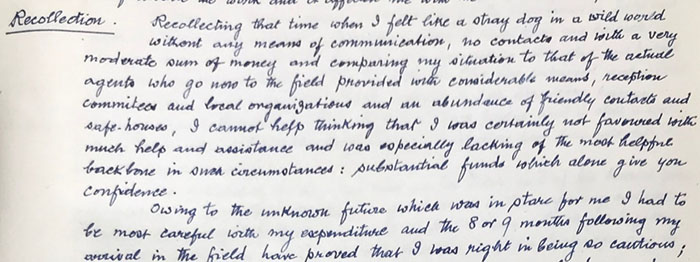 Recollection.
Recollecting that time when I felt like a stray dog in a wild world
without any means of communication, no contacts and with a very
moderate sum of money and comparing my situation to that of the actual
agents who go now to the field provided with considerable means, reception
commitees and local organizations and an abundance of friendly contacts and
safe-houses, I cannot help thinking that I was certainly not favoured with
much help and assistance and was especially lacking of the most helpful
backbone in such circumstances: substantial funds which alone give you
confidence.
Owing to the unknown future which was in store for me I had to
be most careful with my expenditure and the 8 or 9 months following my
arrival in the field have proved that I was right in being so cautious;